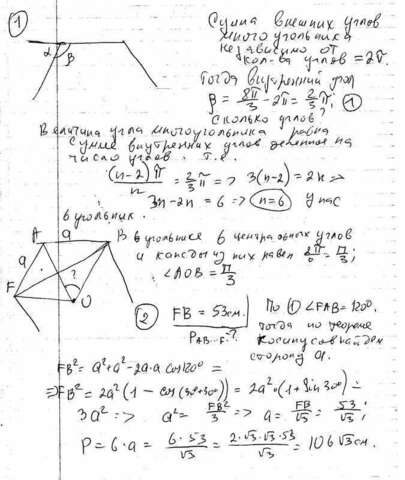 1
Сумма внешних углов
многоугольника
независимо от
кол-ва углов = 2π.
Тогда внутренний угол
α β
β = 8π/3 - 2π = 2/3 π; 1
Сколько углов?
Величина угла многоугольника равна
сумме внутренних углов деленное на
число углов. Т.е.
(n-2)π/n = 2/3 π => 3(n-2) = 2n =>
3n-2n = 6 => n=6 У нас
6 угольник.
A a B В 6 угольнике 6 центральных углов
и каждый из них равен 2π/6 = π/3;
a ? ∠AOB = π/3
F O
2 FB = 53 см. По 1 ∠FAB = 120°.
P AB...F - ? тогда по теореме
косинусов найдем
сторону a.
FB² = a² + a² - 2a·a cos120° =
=> FB² = 2a²(1 - cos(90°+30°)) = 2a²·(1 + sin 30°) =
3a² => a² = FB²/3 => a = FB/√3 = 53/√3;
P = 6·a = 6·53/√3 = 2·√3·√3·53/√3 = 106√3 см.